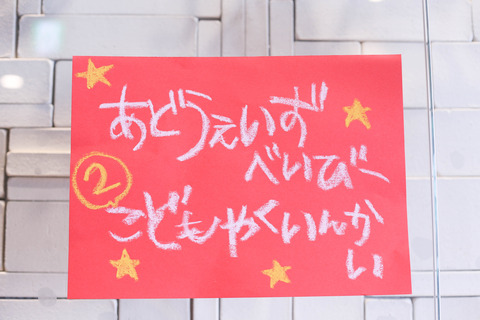 あどうぇいず
べいびー
②
こどもやくいんかい